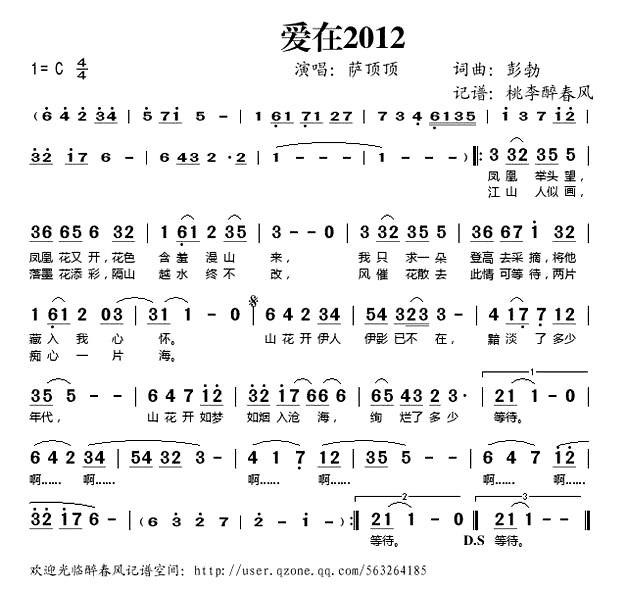 爱在2012
1=C 4/4 演唱：萨顶顶 词曲：彭勃
记谱：桃李醉春风
(6 4 2 34 | 5 71 5 - | 1 61 71 27 | 7 3 4 6135 | 1 3 7 12 |
32 17 6 - | 6 43 2·2 | 1 - - - | 1 - - -) ‖: 3 32 35 5 |
凤凰 举头望，
江山 人似画，
36 65 6 32 | 1 61 2 35 | 3 - - 0 | 3 32 35 5 | 36 67 1 32 |
凤凰花又开，花色 含羞 漫山 来， 我只 求一朵 登高去采摘，将他
落墨花添彩，隔山 越水 终不 改， 风催 花散去 此情可等待，两片
1 61 2 03 | 31 1 - 0 | 𝄋 6 4 2 34 | 54 323 3 - | 4 17 7 12 |
藏入我心 怀。 山花开伊人 伊影已不在， 黯淡了多少
痴心一片 海。
35 5 - - | 6 4 7 12 | 32 17 66 6 | 65 43 2 3· | 21 1 - 0 |
1
年代， 山花开如梦 如烟入沧海， 绚烂了多少 等待。
6 4 2 34 | 54 32 3 - | 4 1 7 12 | 35 5 - - | 6 4 7 12 |
啊…… 啊…… 啊…… 啊…… 啊…… 啊……
32 17 6 - | (6 3 2 7 | 2 - 1 - ) :‖ 21 1 - 0 ‖ 21 1 - - ‖
2 3
等待。 D.S 等待。
欢迎光临醉春风记谱空间：http://user.qzone.qq.com/563264185